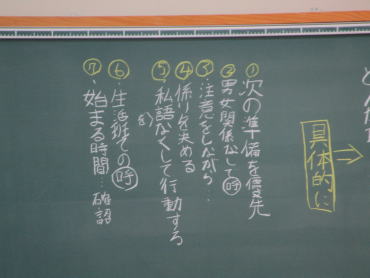 具体的に
①次の準備を優先
②男女関係なしで呼
③注意をしながら…
④係りを決める
⑤私語なくして行動する
⑥生活班での呼
⑦始まる時間…確認